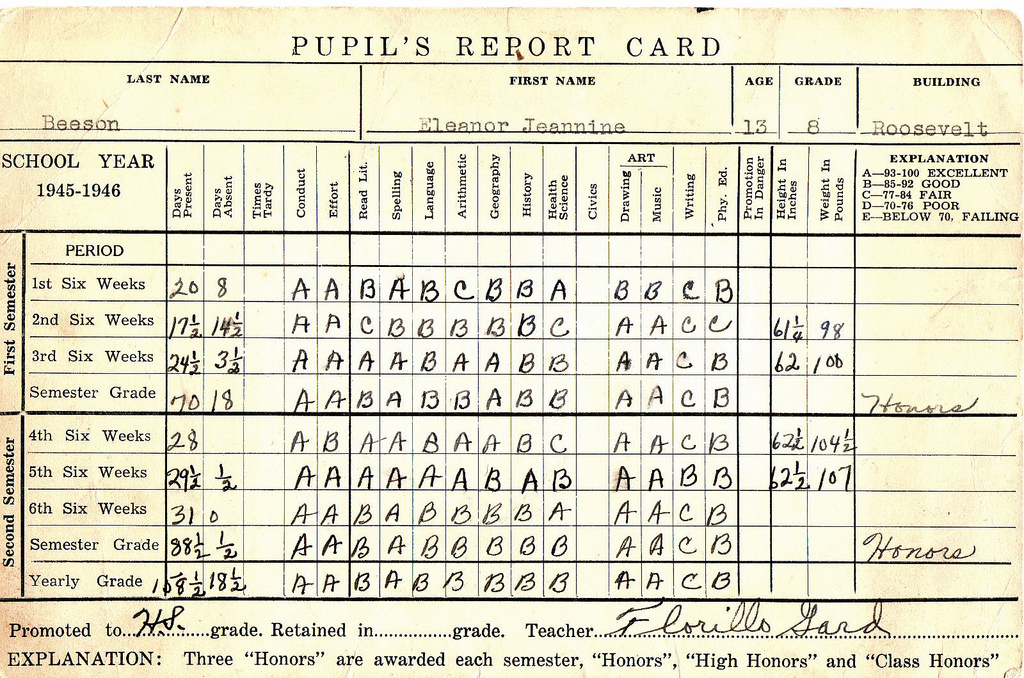 PUPIL'S REPORT CARD
LAST NAME FIRST NAME AGE GRADE BUILDING
Beeson Eleanor Jeannine 13 8 Roosevelt
SCHOOL YEAR
1945-1946
Days Present Days Absent Times Tardy Conduct Effort Read Lit. Spelling Language Arithmetic Geography History Health Science Civics ART Drawing Music Writing Phy. Ed. Promotion In Danger Height In Inches Weight In Pounds
EXPLANATION
A—93-100 EXCELLENT
B—85-92 GOOD
C—77-84 FAIR
D—70-76 POOR
E—BELOW 70, FAILING
PERIOD
First Semester
1st Six Weeks 20 8 A A B A B C B B A B B C B
2nd Six Weeks 17½ 14½ A A C B B B B B C A A C C 61¼ 98
3rd Six Weeks 24½ 3½ A A A A B A A B B A A C B 62 100
Semester Grade 70 18 A A B A B B A B B A A C B Honors
Second Semester
4th Six Weeks 28 A B A A B A A B C A A C B 62½ 104½
5th Six Weeks 29½ ½ A A A A A A B A B A A B B 62½ 107
6th Six Weeks 31 0 A A B A B B B B A A A C B
Semester Grade 88½ ½ A A B A B B B B B A A C B Honors
Yearly Grade 158½ 18½ A A B A B B B B B A A C B
Promoted to...H.S.......grade. Retained in..............grade. Teacher...Florillo Gard
EXPLANATION: Three "Honors" are awarded each semester, "Honors", "High Honors" and "Class Honors"